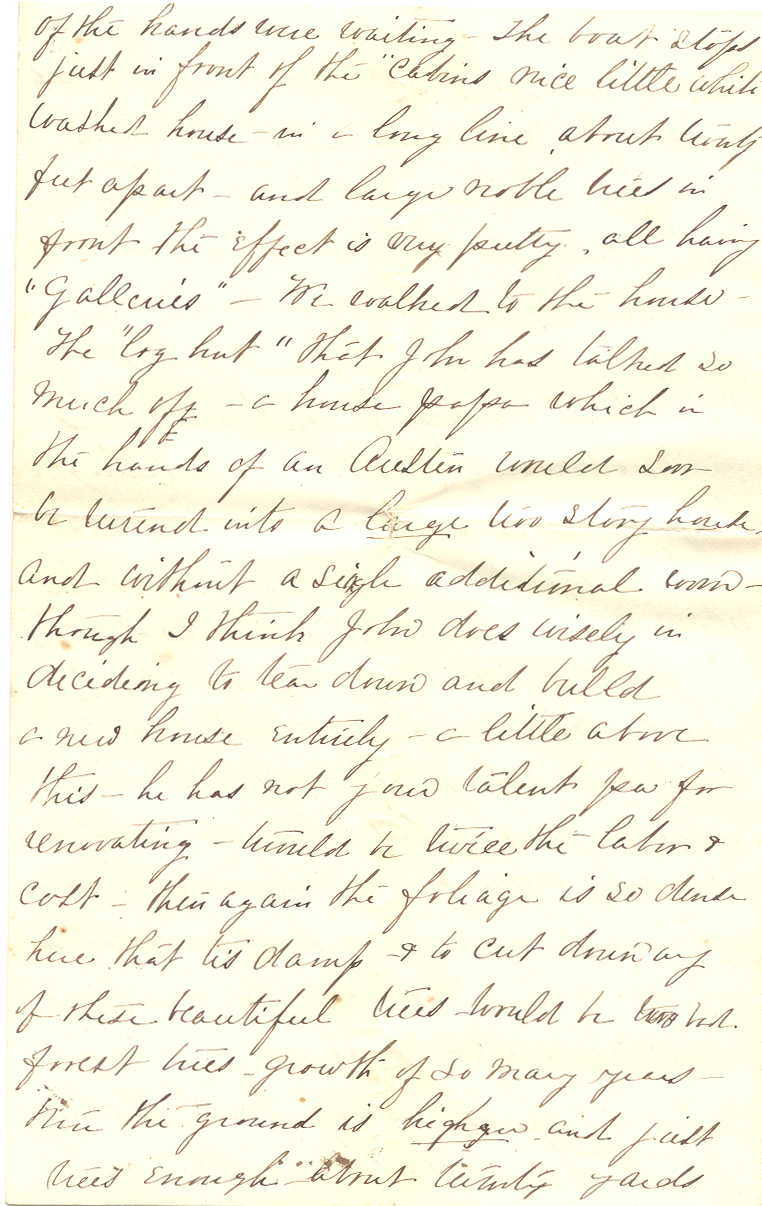 of the hands were waiting - The boat stops
just in front of the "Cabins nice little white
washed house - in a long line about twenty
feet apart - and large noble trees in
front the effect is very pretty, all having
"Galleries" - We walked to the house -
The "log hut" that John has talked so
much of, - a house papa which in
the hands of an Austin would soon
be turend into a large two story house,
and without a single additional room -
though I think John does wisely in
decideing to tear down and build
a new house entirely - a little above
this - he has not your talent pa for
renovating - twould be twice the labor &
cost - then again the foliage is so dense
here that tis damp - & to cut down any
of these beautiful trees would be too bad.
forest trees - growth of so many years -
then the ground is higher and just
trees enough - about twenty yards